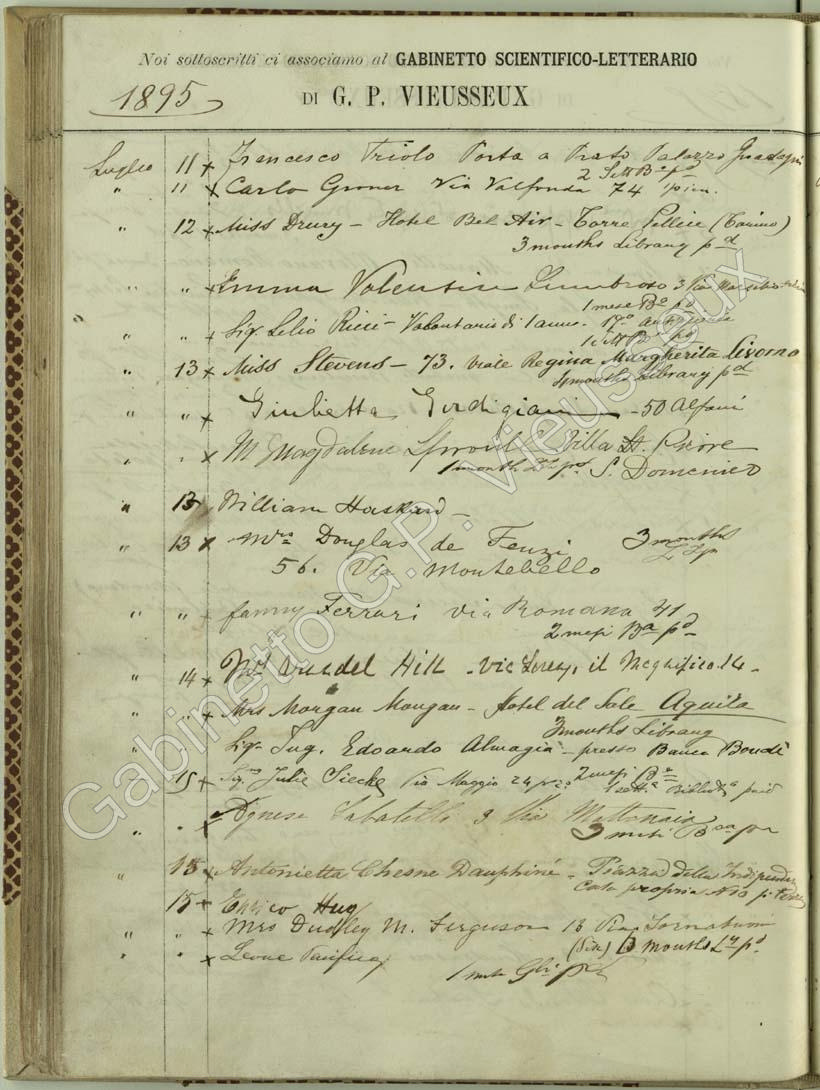 Noi sottoscritti ci associamo al GABINETTO SCIENTIFICO-LETTERARIO
1895
DI G. P. VIEUSSEUX
Luglio 11 x Francesco Triolo Porta a Prato Palazzo Guadagni
2 Sett Ba pd
" 11 x Carlo Groner Via Valfonda 74
" 12 x Miss Drury - Hotel Bel Air - Torre Pellice (Torino)
3 months Library pd
" " x Emma Valentin Lumbroso 3 Via
1 mese Bo pd
" " x Sig. Lelio Ricci - Volontario di 1 anno.
" 13 x Miss Stevens - 73. Viale Regina Margherita Livorno
months Library pd
" " x Giulietta Gordigiani - 50 Alfani
" " x M Magdalene Sproul Villa St. Pierre
1 month pd S. Domenico
" 13 William Haskard -
" 13 x Mrs Douglas de Fenzi 3 months
56. Via Montebello
" " x fanny Ferrari via Romana 41
2 mesi Ba pd
" 14 x Hill - via Lorenzo il Magnifico 14 -
" " x Mrs Morgan Morgan - Hotel del Sole Aquila
3 months Library
" " Sigr Ing. Edoardo Almagià - presso Banca Bondì
" 15 x Julie Siecke Via Maggio 24 2 mesi Ba
paid
" " x Agnese Sabatelli 9 Via Mattonaia
3 mesi
" 15 x Antonietta Chesne Dauphiné - Piazza della Indipendenza
casa propria No 10 p. terreno
15 x Enrico Hug
" " x Mrs Dudley M. Ferguson 13 Via Tornabuoni
(Six) months Ly pd
" " x Leone Pacifici
1
Gabinetto G.P. Vieusseux